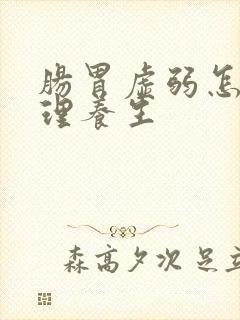 腸胃虛弱怎
理養生
森高夕次 足立